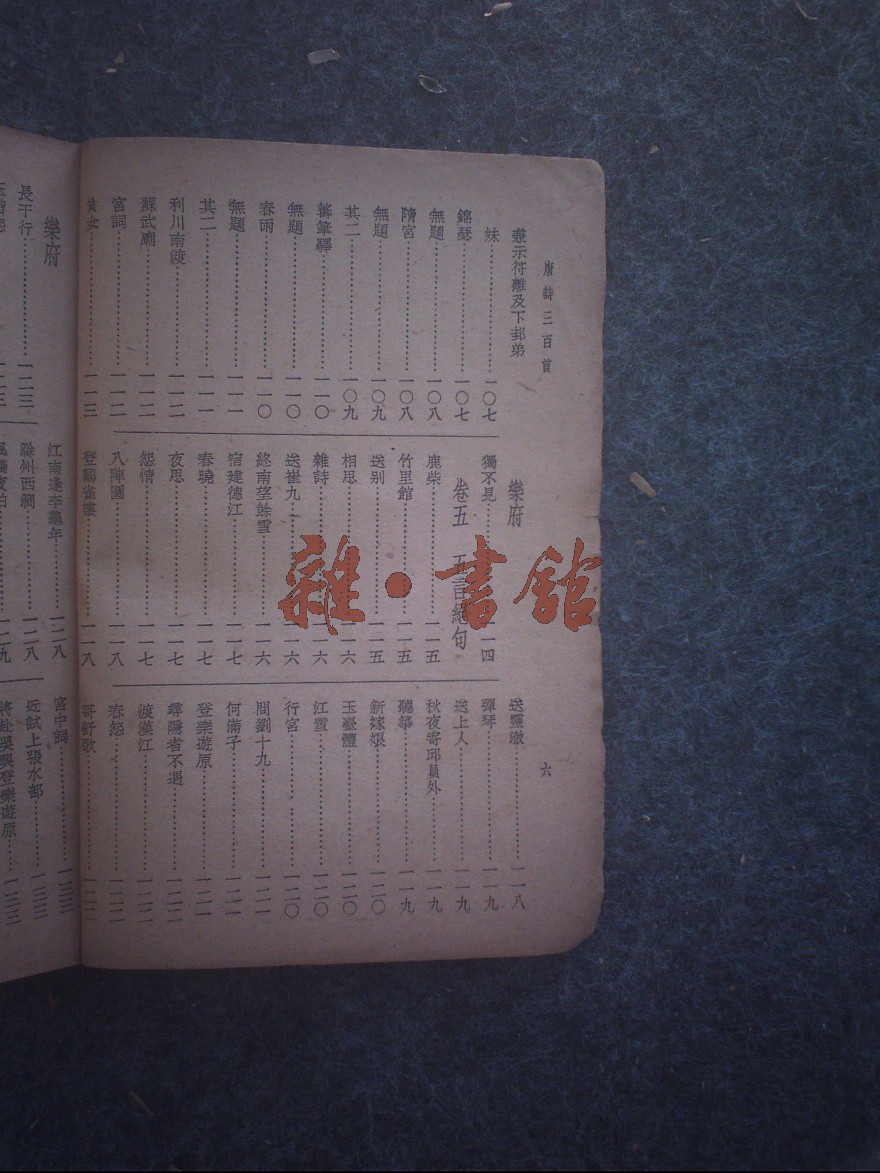 唐詩三百首
兼示符離及下邽弟
妹……一〇七
錦瑟……一〇七
無題……一〇八
隋宮……一〇八
無題……一〇九
其二……一〇九
籌筆驛……一一〇
無題……一一〇
春雨……一一〇
無題……一一一
其二……一一一
利川南渡……一一二
蘇武廟……一一二
宮詞……一一二
貧女……一一三
樂府
獨不見……一一四
卷五 五言絕句
鹿柴……一一五
竹里館……一一五
送別……一一五
相思……一一六
雜詩……一一六
送崔九……一一六
終南望餘雪……一一六
宿建德江……一一七
春曉……一一七
夜思……一一七
怨情……一一七
八陣圖……一一八
登鸛雀樓……一一八
送靈澈……一一八
彈琴……一一九
送上人……一一九
秋夜寄邱員外……一一九
聽箏……一一九
新嫁娘……一二〇
玉臺體……一二〇
江雪……一二〇
行宮……一二〇
問劉十九……一二一
何滿子……一二一
登樂遊原……一二一
尋隱者不遇……一二二
渡漢江……一二二
春怨……一二二
哥舒歌……一二二
六
樂府
長干行……一二三
江南逢李龜年……一二八
滁州西澗……一二八
宮中詞……一三三
近試上張水部……一三三
將赴吳興登樂遊原……一三三
雜·書館